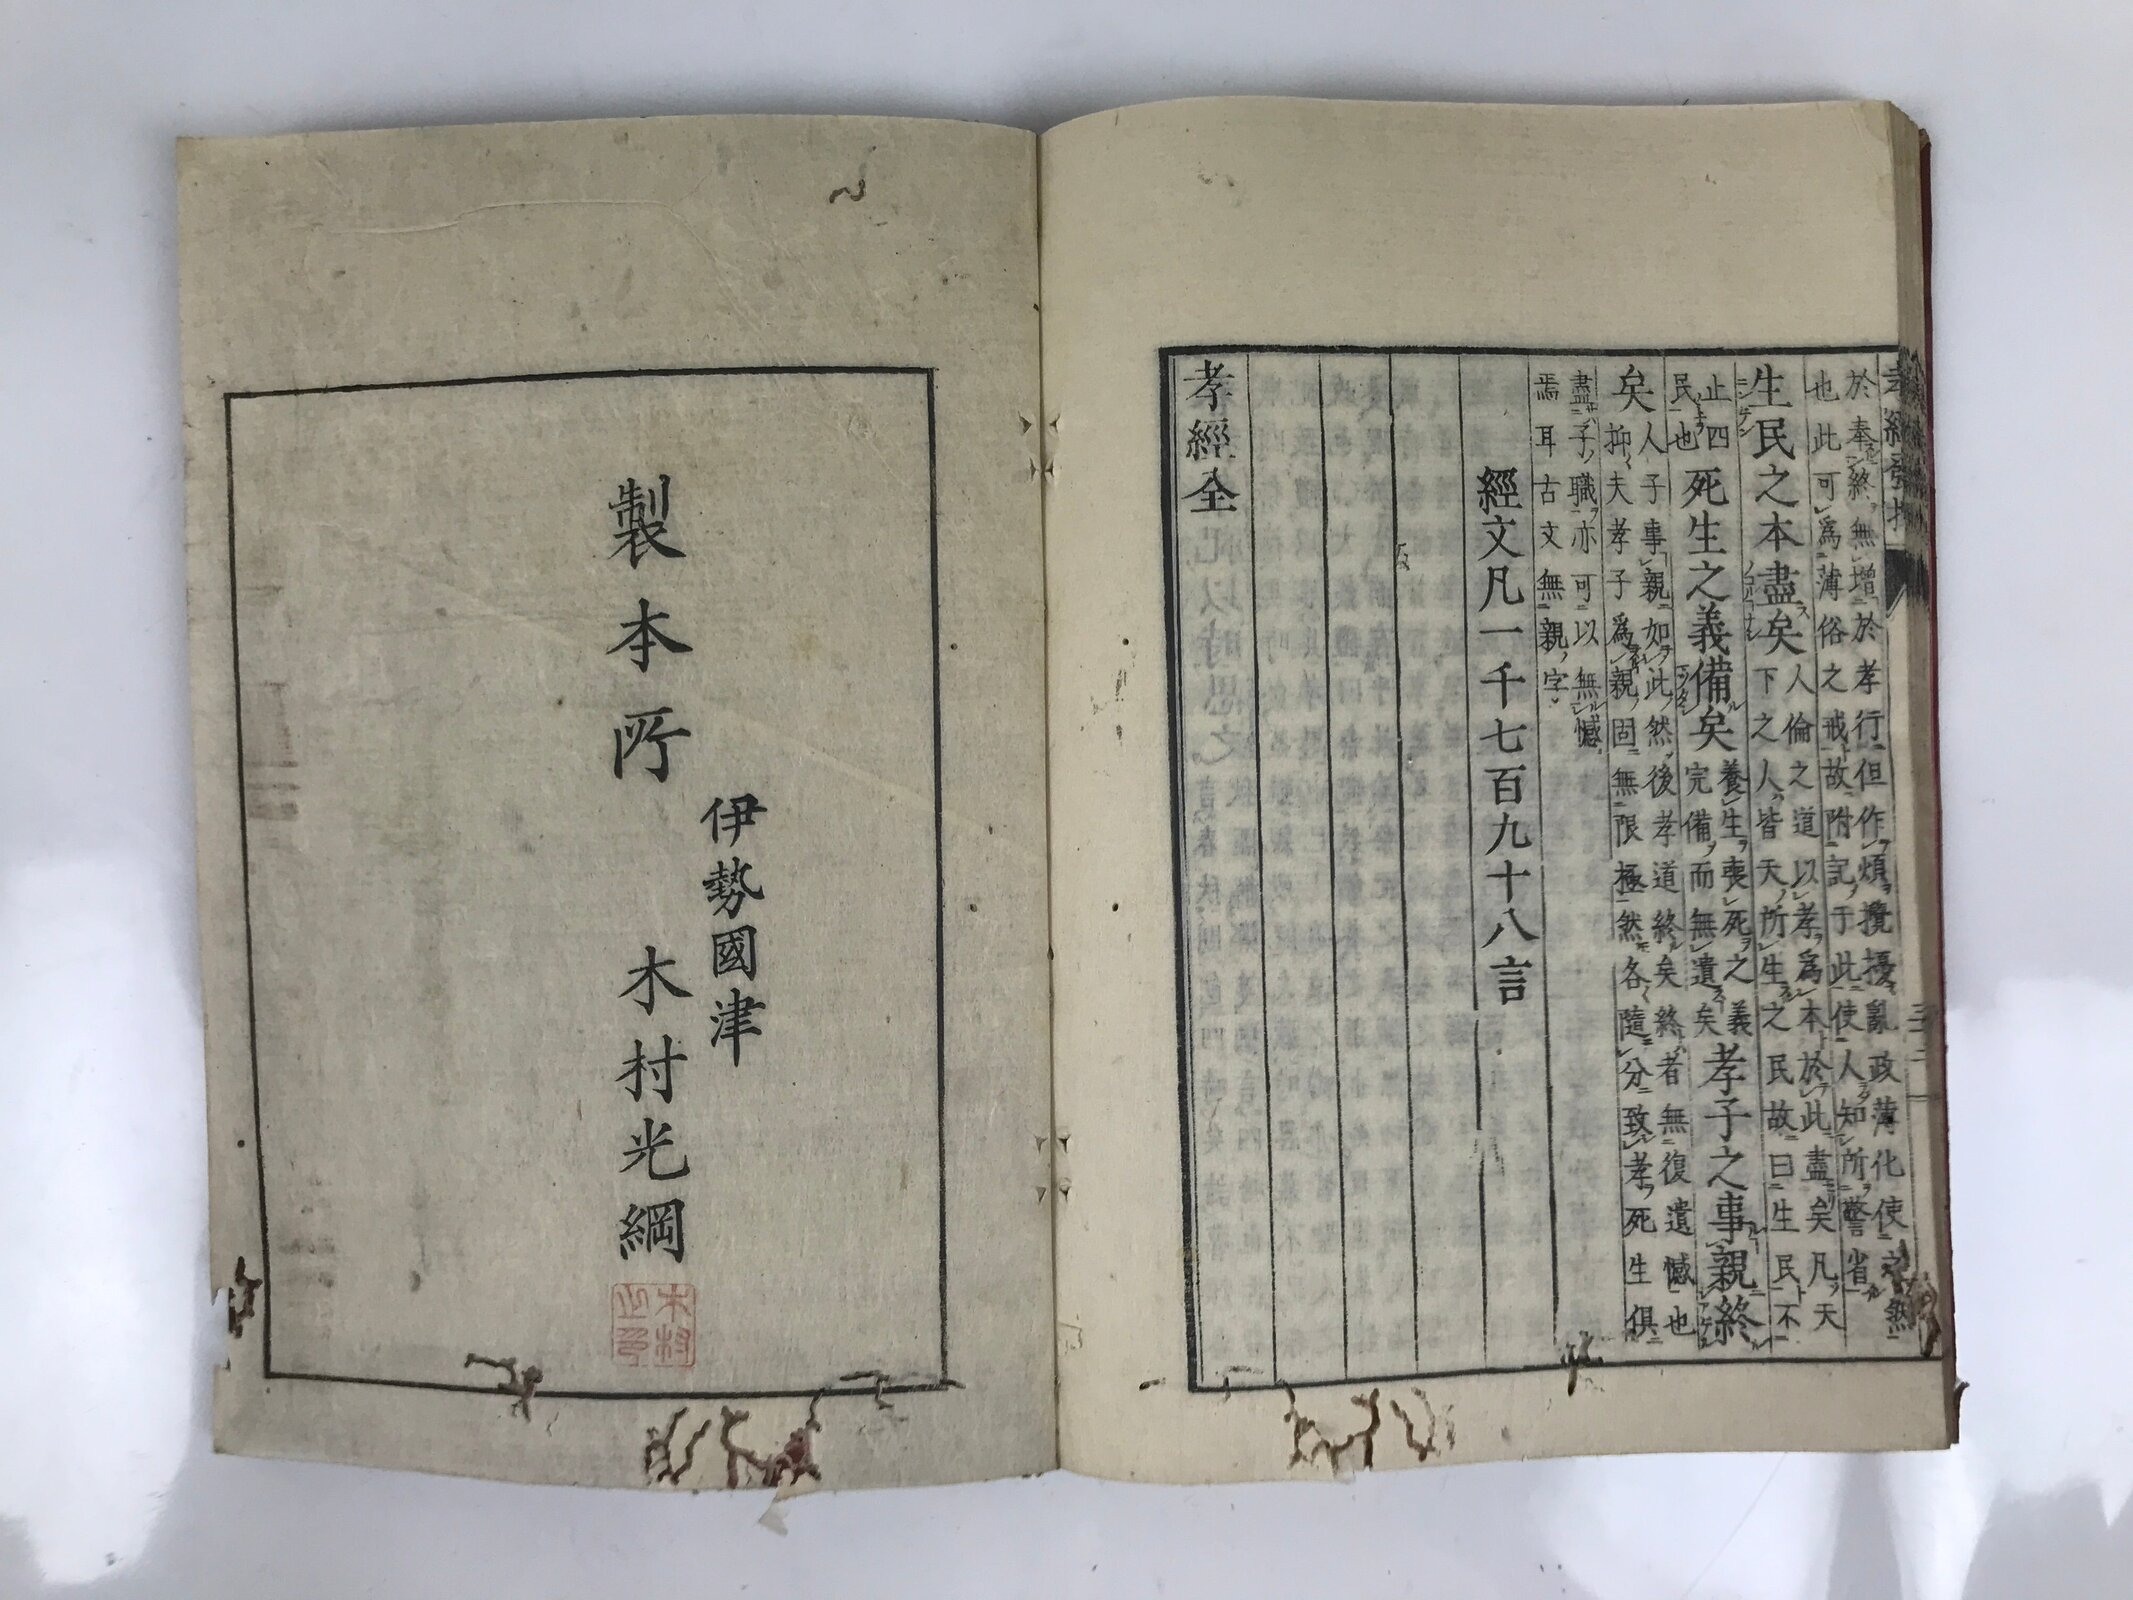 孝經發
於奉終無增於孝行但作煩攪擾亂政薄化使之然
也此可爲薄俗之戒故附記于此使人知所警省
生民之本盡矣人倫之道以孝爲本於此盡矣凡天
下之人皆天所生之民故曰生民不
止四民也死生之義備矣養生喪死之義完備而無遺矣孝子之事親終
矣人子事親如此然後孝道終矣終者無復遺憾也
抑夫孝子爲親固無限極然各隨分致孝死生俱
盡子職亦可以無憾
焉耳古文無親字
經文凡一千七百九十八言
孝經全
製本所
伊勢國津
木村光綱
木村之印